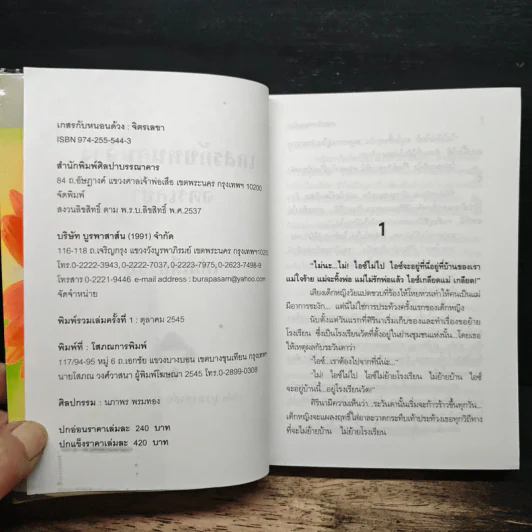 เกสรกับหนอนด้วง : จิตรเลขา
ISBN 974-255-544-3
สำนักพิมพ์ศิลปาบรรณาคาร
84 ถ.อัษฎางค์ แขวงศาลเจ้าพ่อเสือ เขตพระนคร กรุงเทพฯ 10200
จัดพิมพ์
สงวนลิขสิทธิ์ ตาม พ.ร.บ.ลิขสิทธิ์ พ.ศ.2537
บริษัท บูรพาสาส์น (1991) จำกัด
116-118 ถ.เจริญกรุง แขวงวังบูรพาภิรมย์ เขตพระนคร กรุงเทพฯ10200
โทร.0-2222-3943, 0-2222-7037, 0-2223-7975, 0-2623-7498-9
โทรสาร 0-2221-9446 e-mail address : burapasarn@yahoo.com
จัดจำหน่าย
พิมพ์รวมเล่มครั้งที่ 1 : ตุลาคม 2545
พิมพ์ที่ : โสภณการพิมพ์
117/94-95 หมู่ 6 ถ.เอกชัย แขวงบางบอน เขตบางขุนเทียน กรุงเทพฯ
นายโสภณ วงศ์วาสนา ผู้พิมพ์โฆษณา 2545 โทร.0-2899-0308
ศิลปกรรม : นภาพร พรมทอง
ปกอ่อนราคาเล่มละ 240 บาท
ปกแข็งราคาเล่มละ 420 บาท
1
"ไม่นะ...ไม่! ไอซ์ไม่ไป ไอซ์จะอยู่ที่นี่อยู่ที่บ้านของเรา
แม่ใจร้าย แม่จะทิ้งพ่อ แม่ไม่รักพ่อแล้ว ไอซ์เกลียดแม่ เกลียด!"
เสียงเด็กหญิงวัยแปดขวบที่ร้องไห้โฮยหวนทำให้คนเป็นแม่
มีอาการชะงัก... แต่นี่ไม่ใช่การประท้วงครั้งแรกของเด็กหญิง
นับตั้งแต่วันแรกที่ศิรินาเริ่มเก็บของและทำเรื่องขอย้าย
โรงเรียน ซึ่งเป็นโรงเรียนวัดที่ตั้งอยู่ในย่านชุมชนแห่งนั้น...โดยเธอ
ให้เหตุผลกับระวินดาว่า
"ไอซ์...เราต้องไปจากที่นี่นะ..."
"ไม่! ไอซ์ไม่ไป ไอซ์ไม่ย้ายโรงเรียน ไม่ย้ายบ้าน ไอซ์
จะอยู่บ้านนี้...อยู่โรงเรียนวัด!"
ศิรินามีความเห็นว่า...ระวินดานั้นเริ่มจะก้าวร้าวขึ้นทุกวัน...
เด็กหญิงจะแผลงฤทธิ์ใส่อาละวาดกระทืบเท้าประท้วงเธอทุกวิถีทาง
ที่จะไม่ย้ายบ้าน ไม่ย้ายโรงเรียน